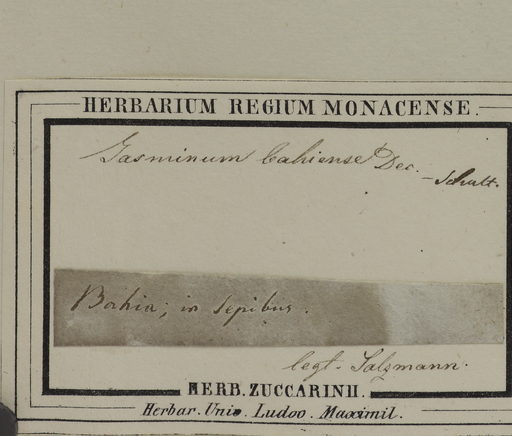 HERBARIUM REGIUM MONACENSE.
Jasminum bahiense Dec.
– Schult.
Bahia; in sepibus.
legt. Salzmann.
HERB. ZUCCARINII.
Herbar. Univ. Ludov. Maximil.